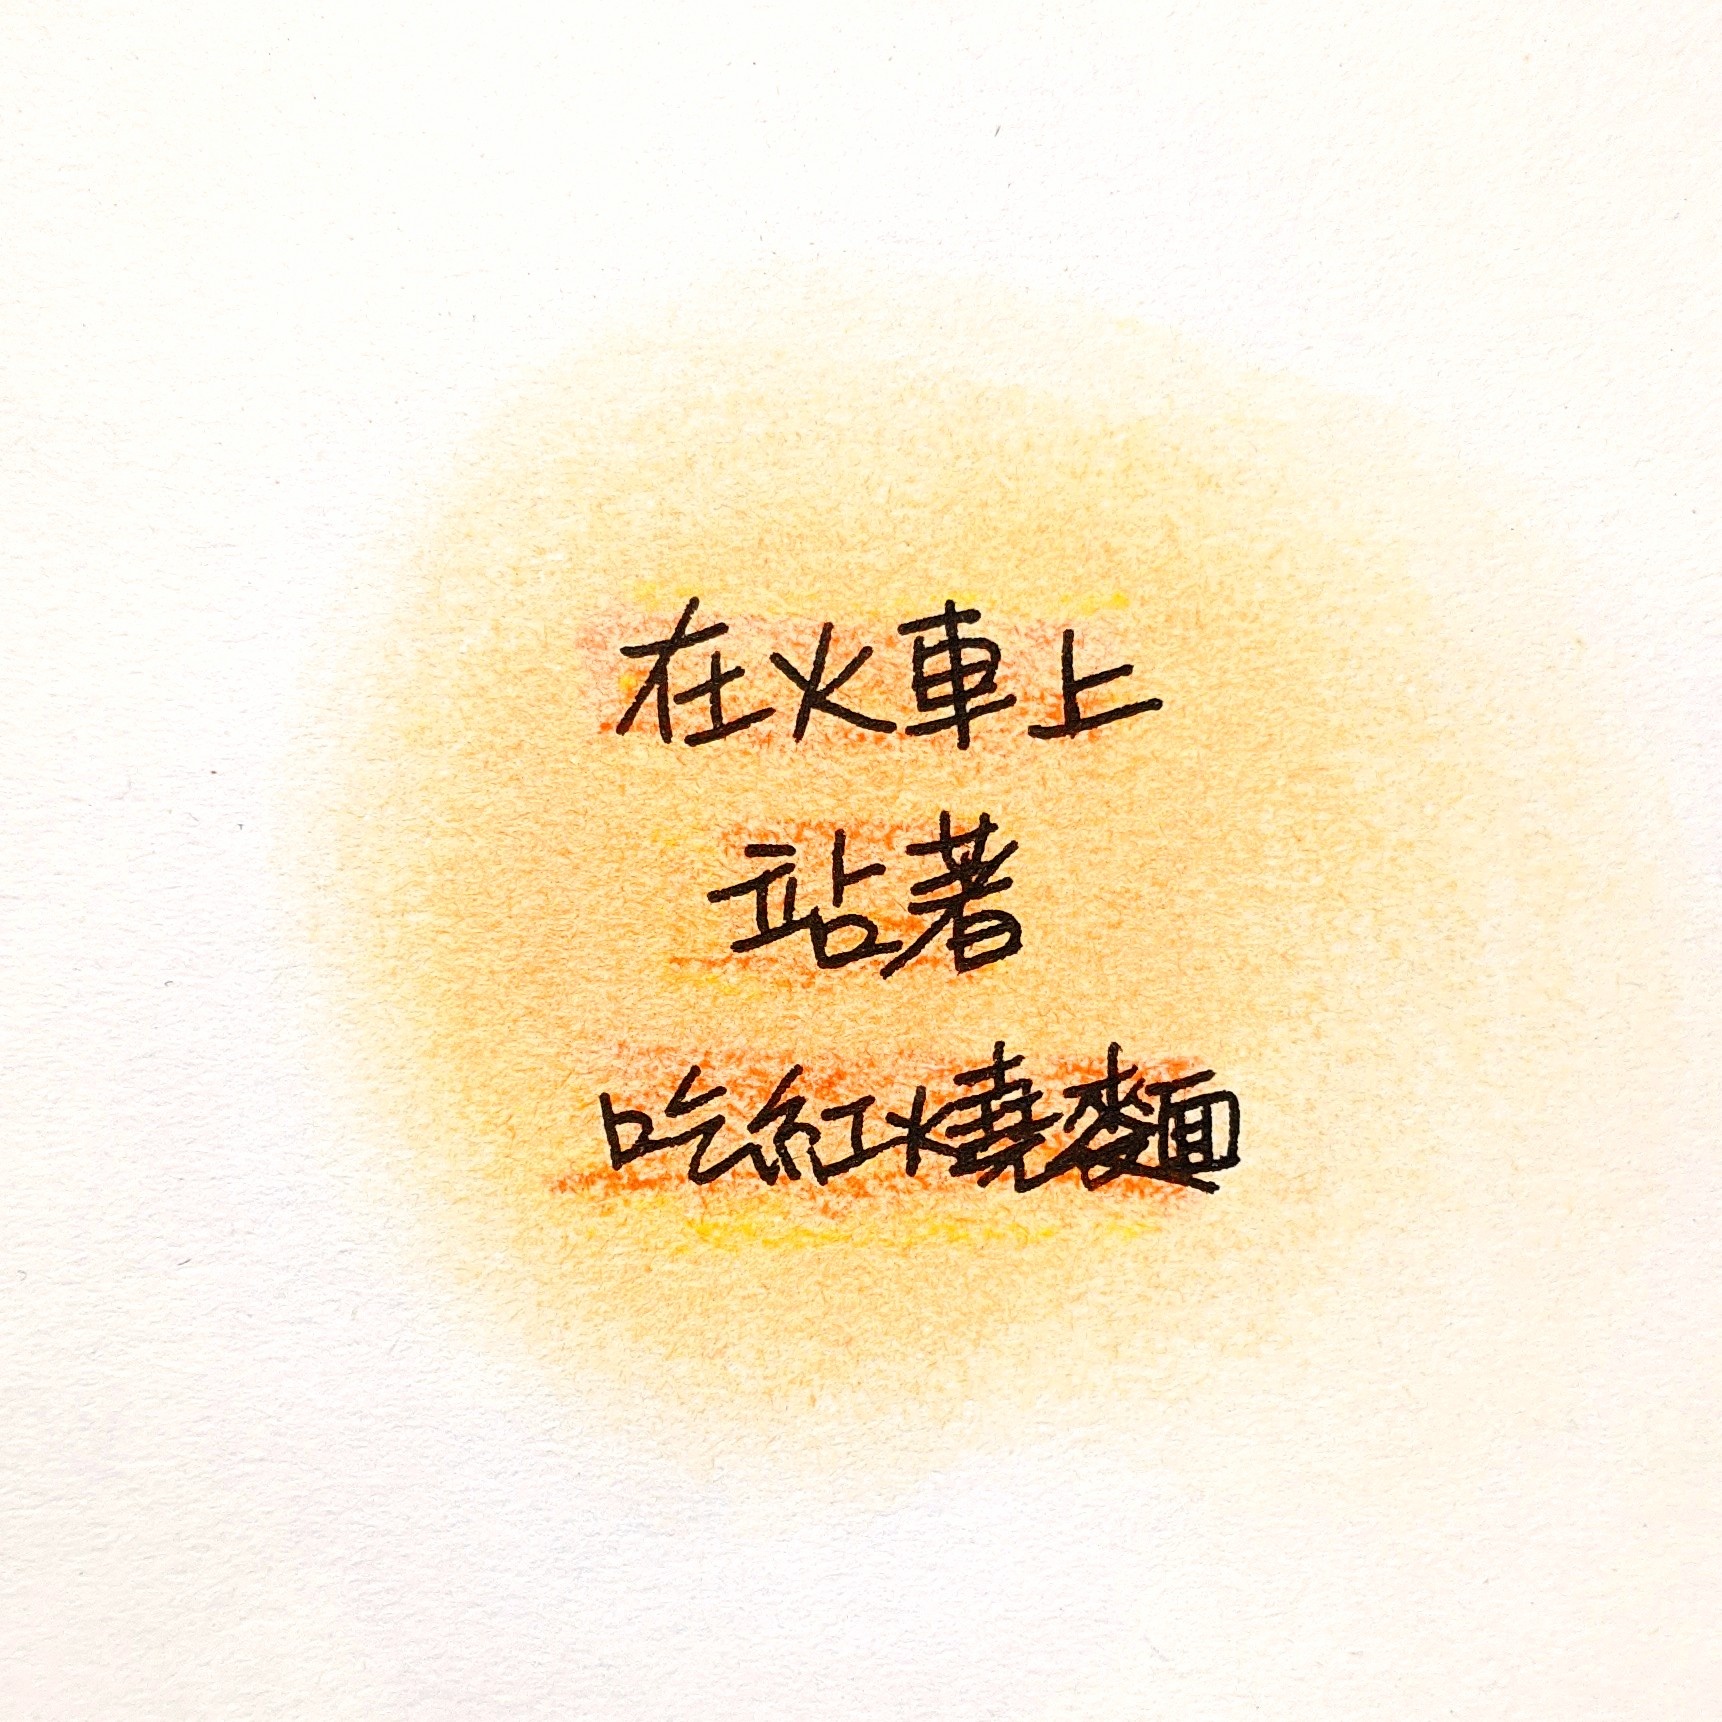 在火車上
站著
吃紅燒麵